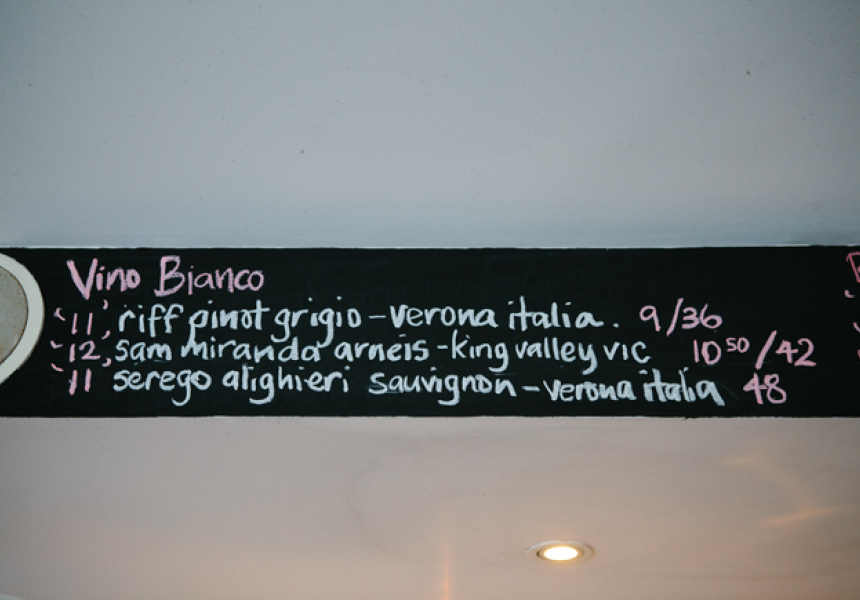 Vino Bianco
'11' riff pinot grigio - verona italia. 9/36
'12, sam miranda arneis - king valley vic 10⁵⁰/42
'11 serego alighieri sauvignon - verona italia 48